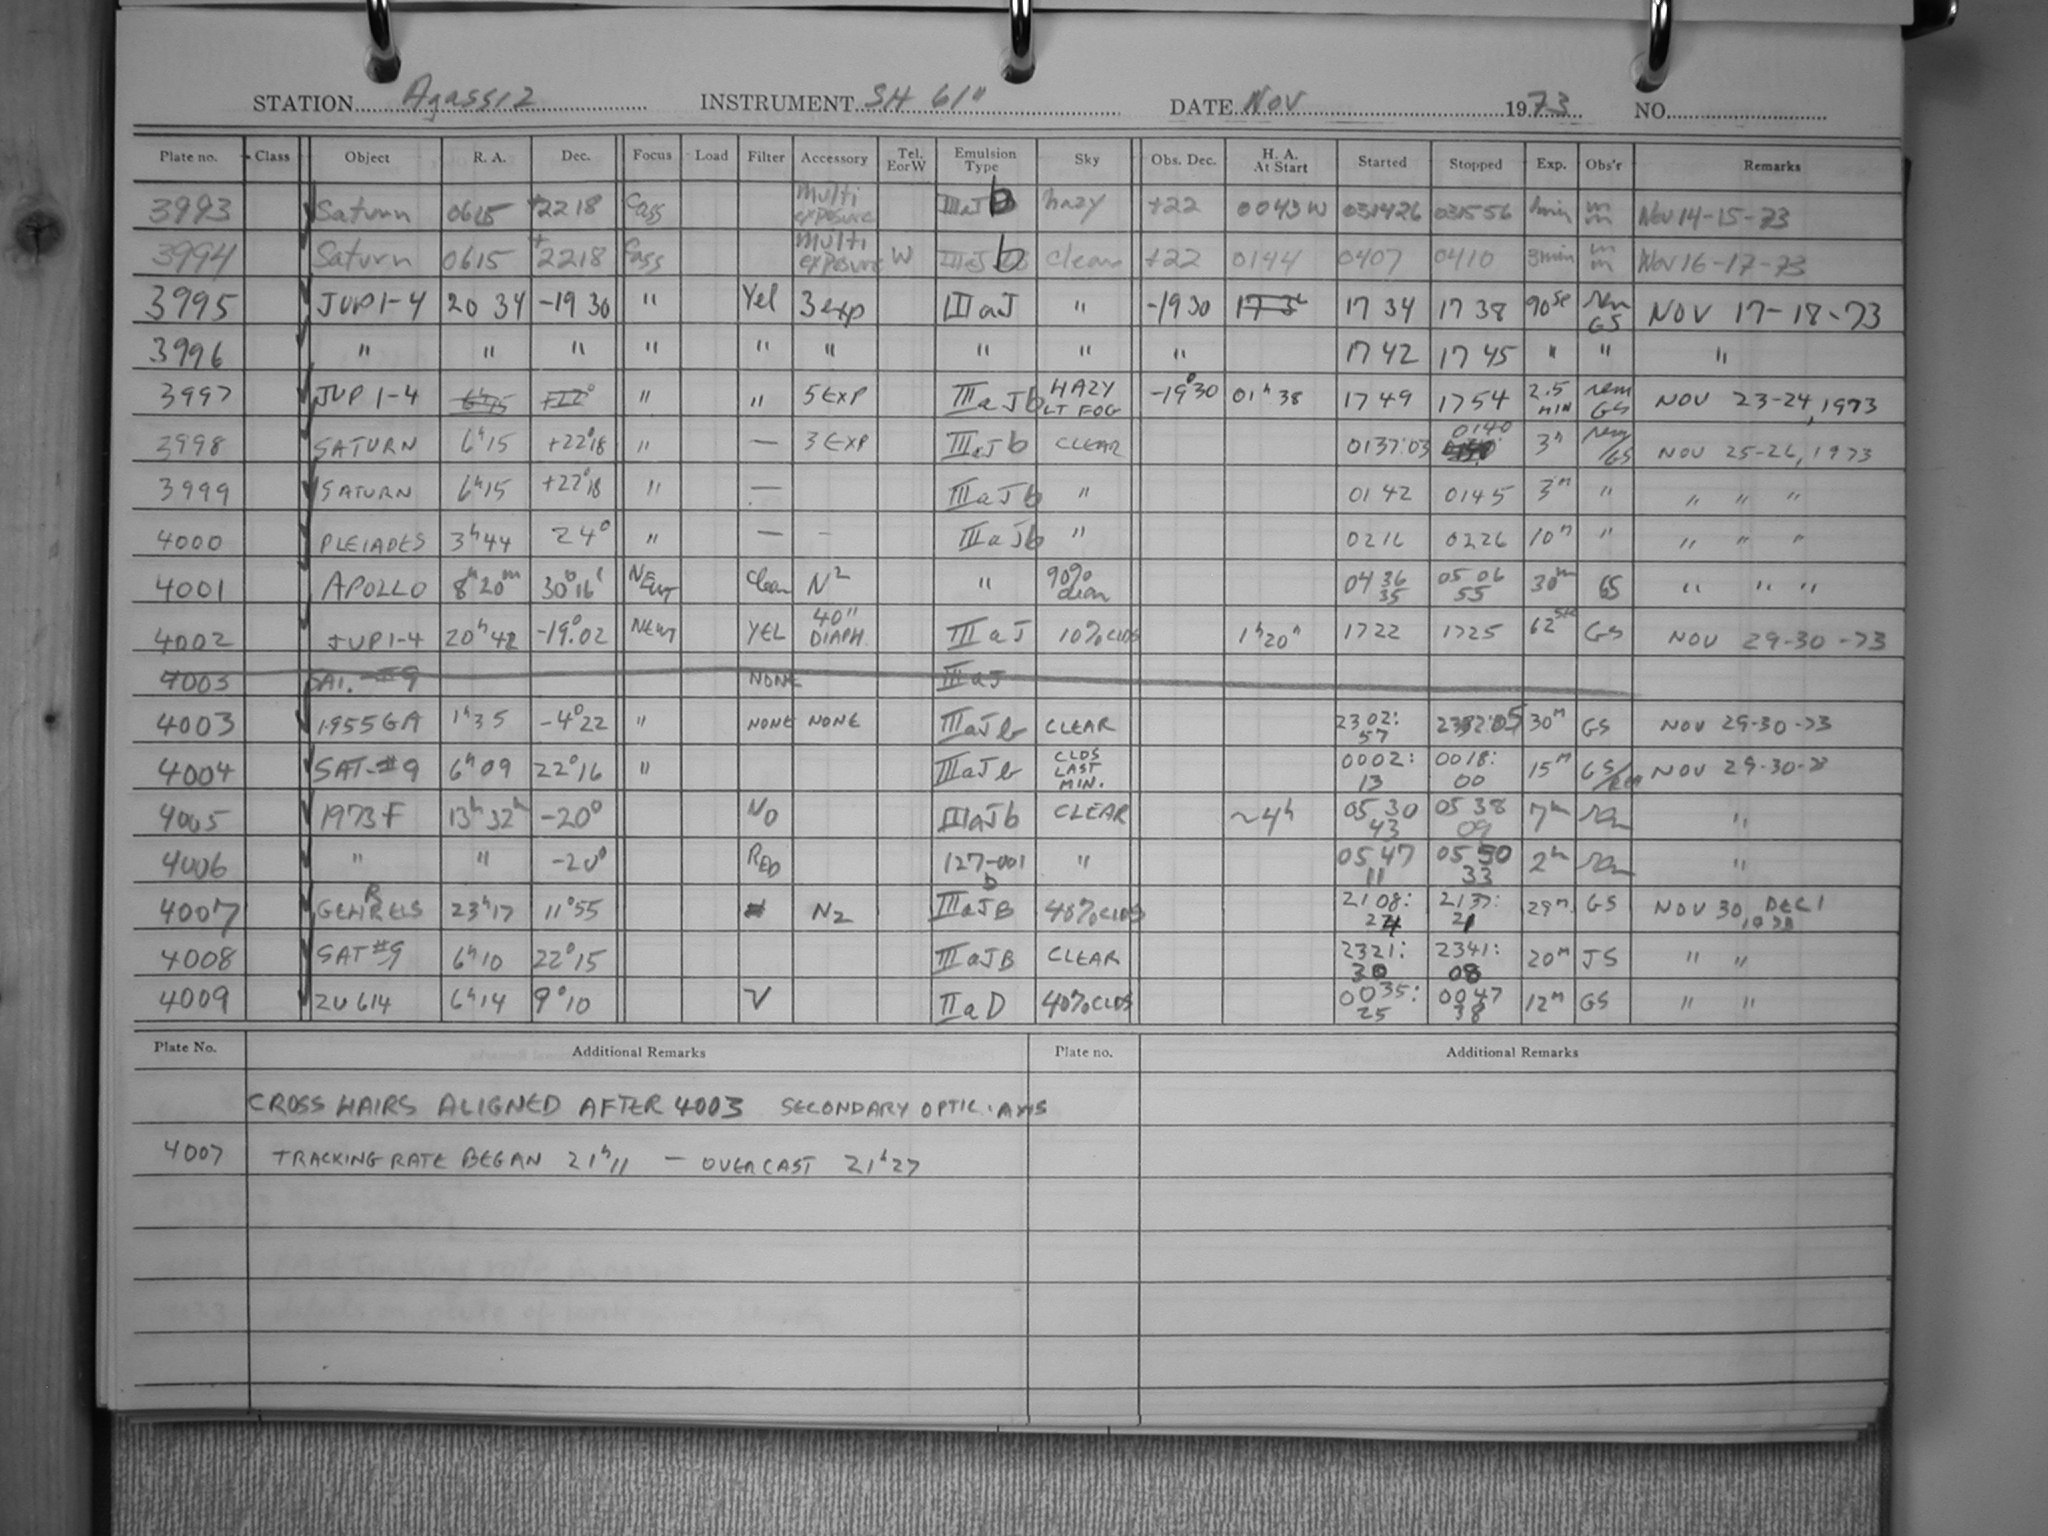 STATION Agassiz INSTRUMENT SH 61" DATE Nov 1973 NO.
Plate no. Class Object R. A. Dec. Focus Load Filter Accessory Tel. E or W Emulsion Type Sky Obs. Dec. H. A. At Start Started Stopped Exp. Obs'r Remarks
3993 Saturn 0615 +2218 Cass Multi exposure IIIaJb hazy +22 0043W 031426 031556 Nov 14-15-73
3994 Saturn 0615 +2218 Cass Multi exposure W IIIaJb clear +22 0144 0407 0410 3min Nov 16-17-73
3995 JUP 1-4 20 34 -19 30 " Yel 3 exp IIIaJ " -19 30 17 34 17 38 90 rem GS NOV 17-18-73
3996 " " " " " " " " " 17 42 17 45 " " "
3997 JUP 1-4 " " 5 EXP IIIaJb HAZY LT FOG -19°30 01h38 17 49 17 54 2.5 MIN rem GS NOV 23-24, 1973
3998 SATURN 6h15 +22°18 " — 3 EXP IIIaJb CLEAR 0137:03 0140 rem/GS NOV 25-26, 1973
3999 SATURN 6h15 +22°18 " — IIIaJb " 0142 0145 3m " " " "
4000 PLEIADES 3h44 24° " — – IIIaJb " 0216 0226 10m " " " "
4001 APOLLO 8h20m 30°16' NEWT Clear N2 " 90% clear 04 36 35 05 06 55 30m GS " " "
4002 JUP 1-4 20h42 -19°.02 NEWT YEL 40" DIAPH. IIIaJ 10% CLDS 1h20 1722 1725 62sec GS NOV 29-30-73
4003 SAT. #9 NONE IIIaJ
4003 1955GA 1h35 -4°22 " NONE NONE IIIaJb CLEAR 2302:57 30m GS NOV 29-30-73
4004 SAT-#9 6h09 22°16 " IIIaJb CLDS LAST MIN. 0002:13 0018:00 15m GS/rem NOV 29-30-73
4005 1973F 13h32 -20° NO IIIaJb CLEAR ~4h 05 30 43 05 38 09 7m rem "
4006 " " -20° RED 127-001 " 05 47 11 05 50 33 2m rem "
4007 GEHRELS 23h17 11°55 N2 IIIaJB 40% CLDS 2108:24 2137:21 29m GS NOV 30, DEC 1
4008 SAT #9 6h10 22°15 IIIaJB CLEAR 2321:30 2341:08 20m JS " "
4009 ZU 614 6h14 9°10 V IIaD 40% CLDS 0035:25 0047 38 12m GS " "
Plate No. Additional Remarks Plate no. Additional Remarks
CROSS HAIRS ALIGNED AFTER 4003 SECONDARY OPTIC. AXIS
4007 TRACKING RATE BEGAN 21h11 — OVERCAST 21h27